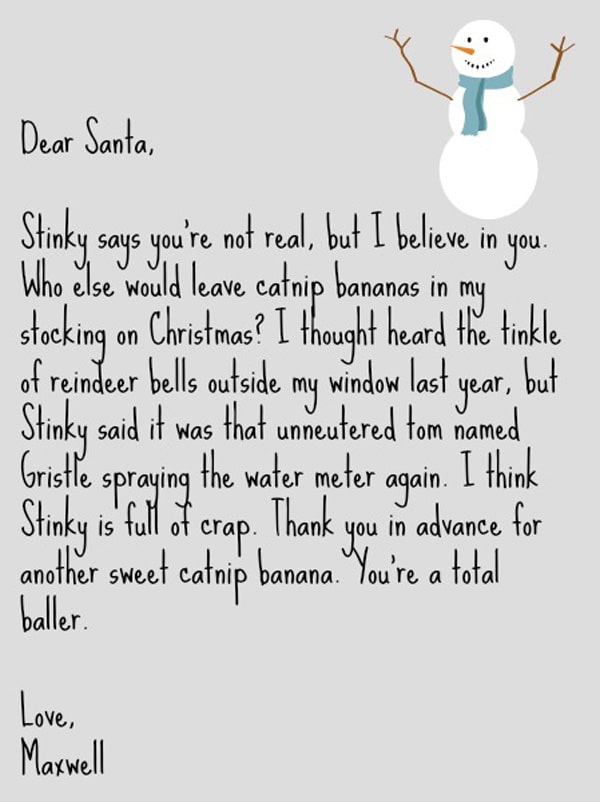 Dear Santa,
Stinky says you're not real, but I believe in you.
Who else would leave catnip bananas in my
stocking on Christmas? I thought heard the tinkle
of reindeer bells outside my window last year, but
Stinky said it was that unneutered tom named
Gristle spraying the water meter again. I think
Stinky is full of crap. Thank you in advance for
another sweet catnip banana. You're a total
baller.
Love,
Maxwell